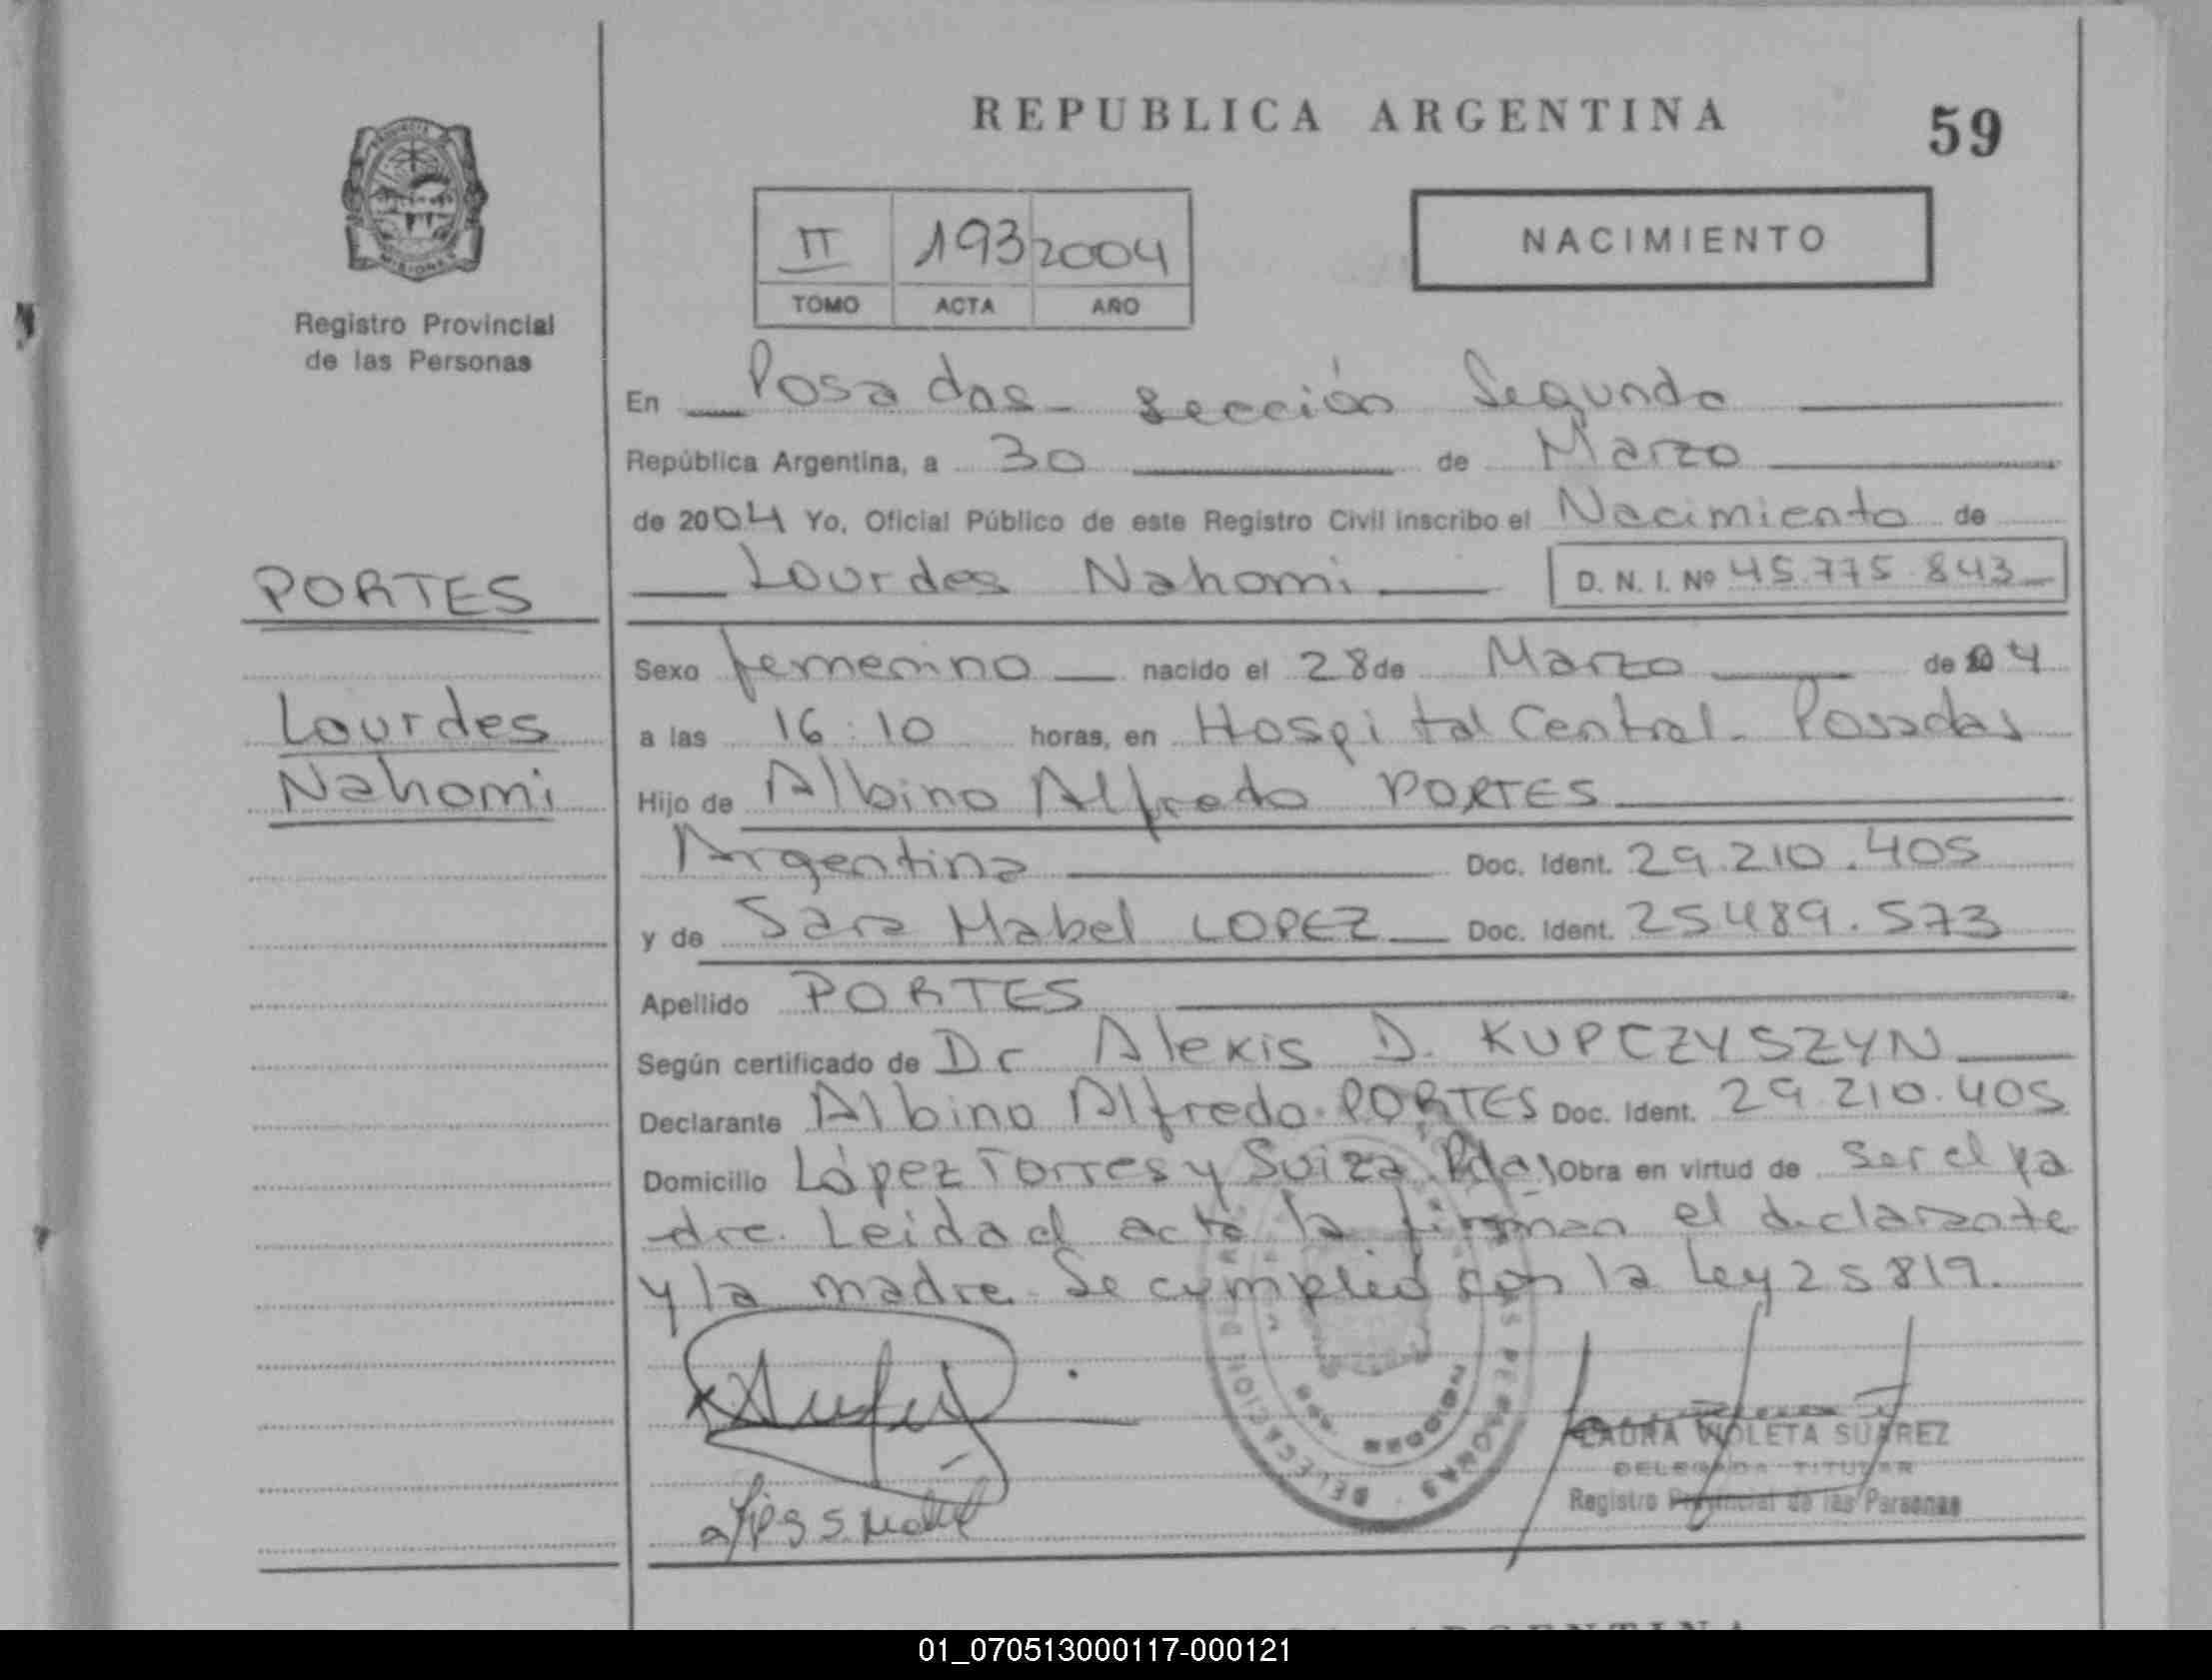 REPUBLICA ARGENTINA
59
PROVINCIA
MISIONES
Registro Provincial
de las Personas
II 193 2004
TOMO ACTA AÑO
NACIMIENTO
En Posadas - sección Segunda
República Argentina, a 30 de Marzo
de 2004 Yo, Oficial Público de este Registro Civil inscribo el Nacimiento de
Lourdes Nahomi D. N. I. Nº 45.775.843
PORTES
Lourdes
Nahomi
Sexo femenino nacido el 28 de Marzo de 04
a las 16:10 horas, en Hospital Central - Posadas
Hijo de Albino Alfredo PORTES
Argentina Doc. Ident. 29.210.405
y de Sara Mabel LOPEZ Doc. Ident. 25.489.573
Apellido PORTES
Según certificado de Dr Alexis D. KUPCZYSZYN
Declarante Albino Alfredo PORTES Doc. Ident. 29.210.405
Domicilio López Torres y Suiza Pdas Obra en virtud de ser el pa
dre. Leida el acta la firman el declarante
y la madre. Se cumplió con la Ley 25819.
LAURA VIOLETA SUAREZ
DELEGADA TITULAR
Registro Provincial de las Personas
01_070513000117-000121